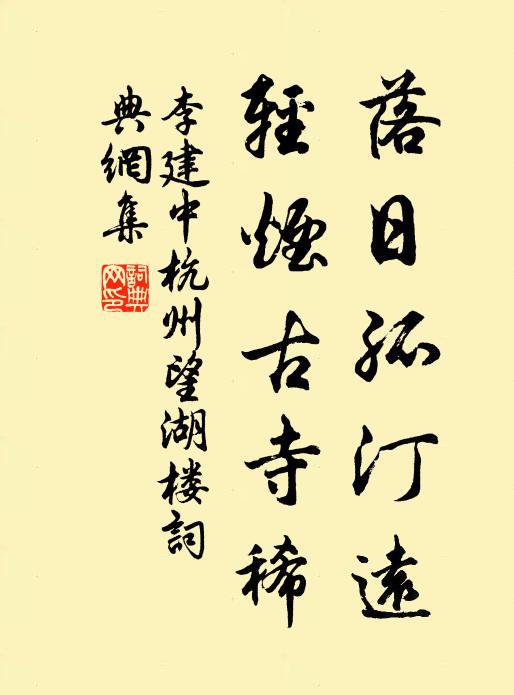 落日孤汀遠
輕煙古寺稀
李建中杭州望湖楼詞
典網集
詞典
网印